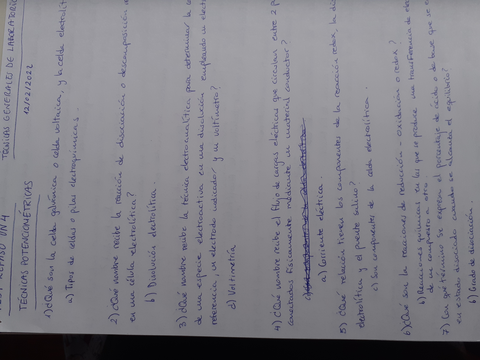 TÉCNICAS GENERALES DE LABORATORIO
12/02/2022
REPASO UN 4
TÉCNICAS POTENCIOMÉTRICAS
1) ¿Qué son la celda galvánica o celda voltaica, y la celda electrolít
a) Tipos de celdas o pilas electroquímicas.
2) ¿Qué nombre recibe la reacción de disociación o descomposición
en una célula electrolítica?
b) Disolución electrolítica.
3) ¿Qué nombre recibe la técnica electroanalítica para determinar la
de una especie electroactiva en una disolución empleando un elect
referencia, un electrodo indicador y un voltímetro?
d) Voltimetría
4) ¿Qué nombre recibe el flujo de cargas eléctricas que circulan entre 2 p
conectados físicamente mediante un material conductor?
a) Corriente eléctrica.
5) ¿Qué relación tienen los componentes de la reacción redox, la
electrolítica y el puente salino?
c) Son componentes de la celda electrolítica.
6) ¿Qué son las reacciones de reducción - oxidación o redox?
b) Reacciones químicas en las que se produce una transferencia de
de un compuesto a otro.
7) ¿Con qué término se expresa el porcentaje de ácido o de base que se
en estado disociado cuando se alcanza el equilibrio?
b) Grado de disociación.